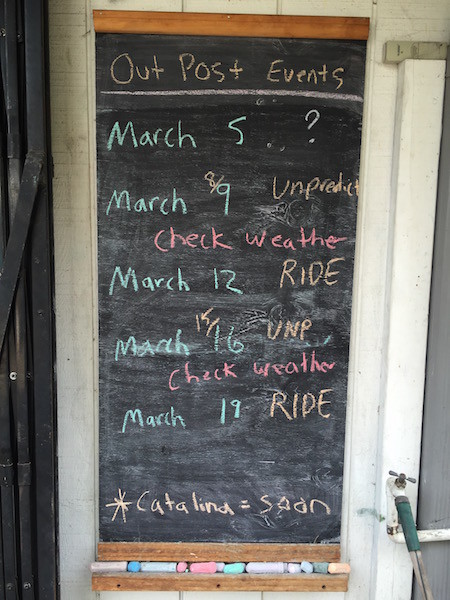 Out Post Events
March 5 .. ?
March 8/9 Unpredict
Check weather
March 12 RIDE
March 15/16 UNP
Check weather
March 19 RIDE
*Catalina = soon